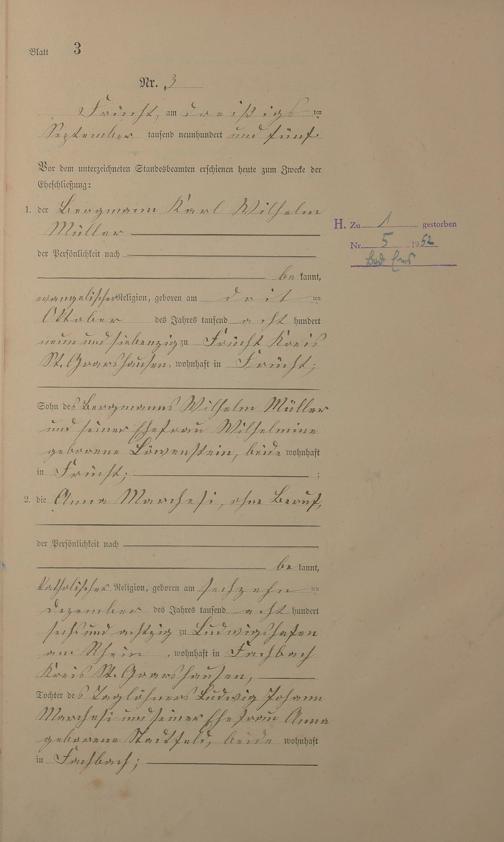 Blatt 3
Nr. 3
Frücht, am dreißigsten
September tausend neunhundert und fünf
Vor dem unterzeichneten Standesbeamten erschienen heute zum Zwecke der
Eheschließung:
1. der Bergmann Karl Wilhelm
Müller
der Persönlichkeit nach
be kannt,
evangelischer Religion, geboren am dritten
Oktober des Jahres tausend acht hundert
neun und siebenzig zu Frücht Kreis
St. Goarshausen, wohnhaft in Frücht;
Sohn des Bergmanns Wilhelm Müller
und seiner Ehefrau Wilhelmine
geborene Löwenstein, beide wohnhaft
in Frücht;
2. die Anna Marchesi, ohne Beruf,
der Persönlichkeit nach
be kannt,
katholischer Religion, geboren am sechzehn ten
Dezember des Jahres tausend acht hundert
sechs und achtzig zu Ludwigshafen
am Rhein, wohnhaft in Fachbach
Kreis St. Goarshausen,
Tochter des Taglöhners Ludwig Johann
Marchesi und seiner Ehefrau Anna
geborene Stadtfeld, beide wohnhaft
in Fachbach;
H. Zu 1 gestorben
Nr. 5 1952
Bad Ems